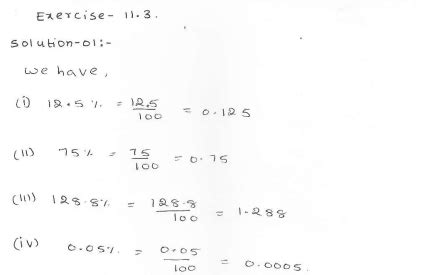 Exercise- 11.3.
Solution-01:-
we have,
(i) 12.5% = 12.5/100 = 0.125
(ii) 75% = 75/100 = 0.75
(iii) 128.8% = 128.8/100 = 1.288
(iv) 0.05% = 0.05/100 = 0.0005.